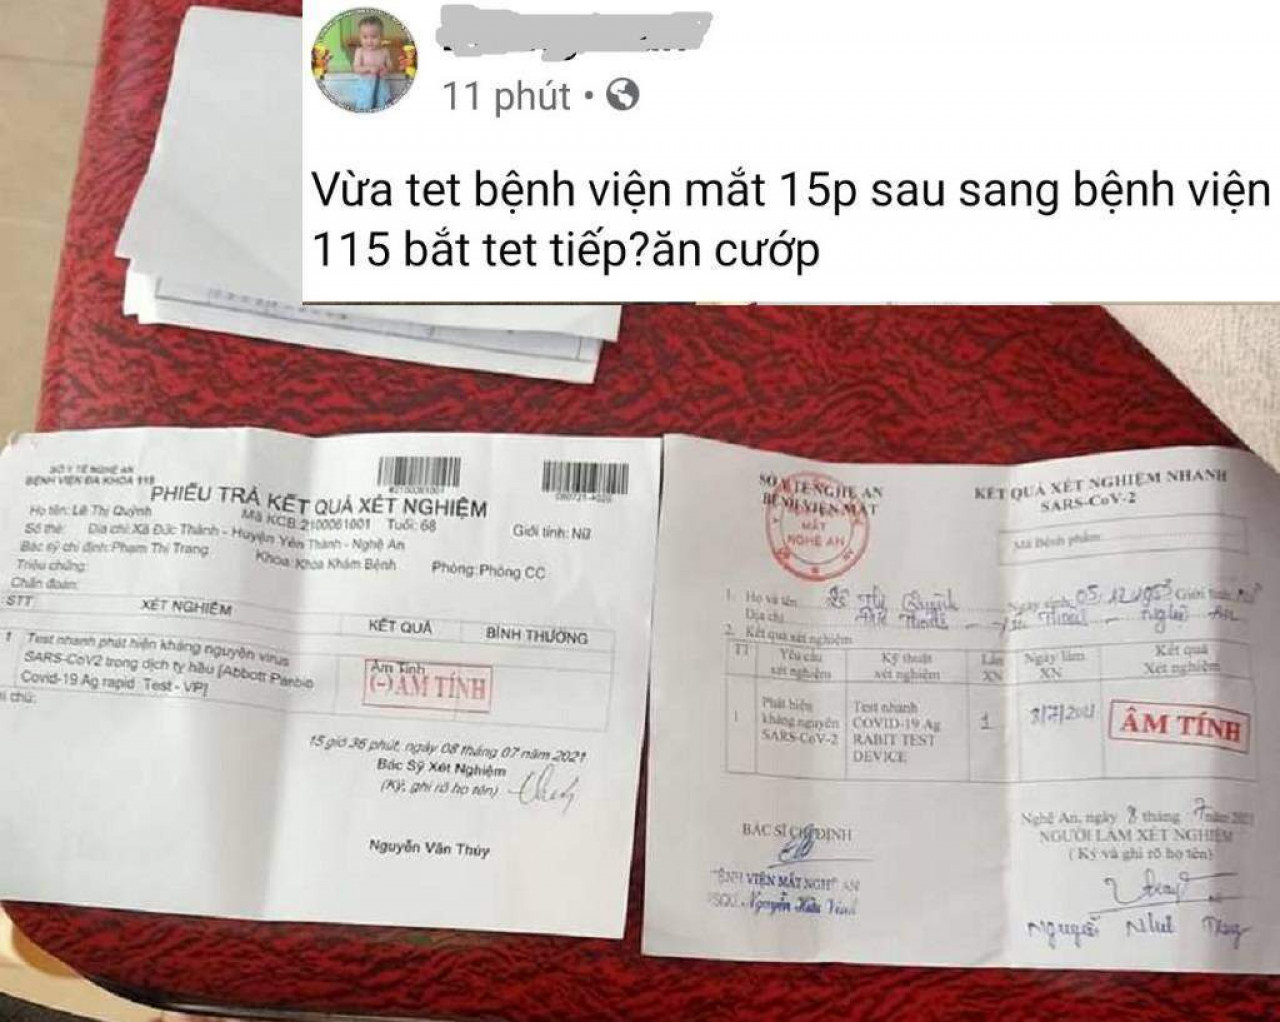 11 phút
Vừa tet bệnh viện mắt 15p sau sang bệnh viện
115 bắt tet tiếp?ăn cướp
SỞ Y TẾ NGHỆ AN
BỆNH VIỆN ĐA KHOA 115
PHIẾU TRẢ KẾT QUẢ XÉT NGHIỆM
Mã KCB:2100061001 Tuổi: 68
Giới tính: Nữ
Họ tên: Lê Thị Quỳnh
Số thẻ: Địa chỉ: Xã Đức Thành - Huyện Yên Thành - Nghệ An
Bác sỹ chỉ định: Phạm Thị Trang Khoa: Khoa Khám Bệnh Phòng: Phòng CC
Triệu chứng:
Chẩn đoán:
STT XÉT NGHIỆM KẾT QUẢ BÌNH THƯỜNG
1 Test nhanh phát hiện kháng nguyên virus
SARS-CoV2 trong dịch tỵ hầu [Abbott Panbio
Covid-19 Ag rapid Test - VP]
Âm Tính
(-) ÂM TÍNH
chú:
15 giờ 36 phút, ngày 08 tháng 07 năm 2021
Bác Sỹ Xét Nghiệm
(Ký, ghi rõ họ tên)
Nguyễn Văn Thúy
SỞ Y TẾ NGHỆ AN
BỆNH VIỆN MẮT
MẮT
NGHỆ AN
KẾT QUẢ XÉT NGHIỆM NHANH
SARS-CoV-2
Mã Bệnh phẩm:
1. Họ và tên Lê Thị Quỳnh Ngày sinh 05.12.1953 Giới tính
Địa chỉ Đức Thành - Yên Thành - Nghệ An
2. Kết quả xét nghiệm
TT Yêu cầu xét nghiệm Kỹ thuật xét nghiệm Lần XN Ngày làm XN Kết quả Xét nghiệm
1 Phát hiện kháng nguyên SARS-CoV-2 Test nhanh COVID-19 Ag RABIT TEST DEVICE 1 8/7/2021 ÂM TÍNH
Nghệ An, ngày 8 tháng 7 năm 2021
BÁC SĨ CHỈ ĐỊNH NGƯỜI LÀM XÉT NGHIỆM
(Ký và ghi rõ họ tên)
BỆNH VIỆN MẮT NGHỆ AN
Nguyễn Hữu
Nguyễn Như